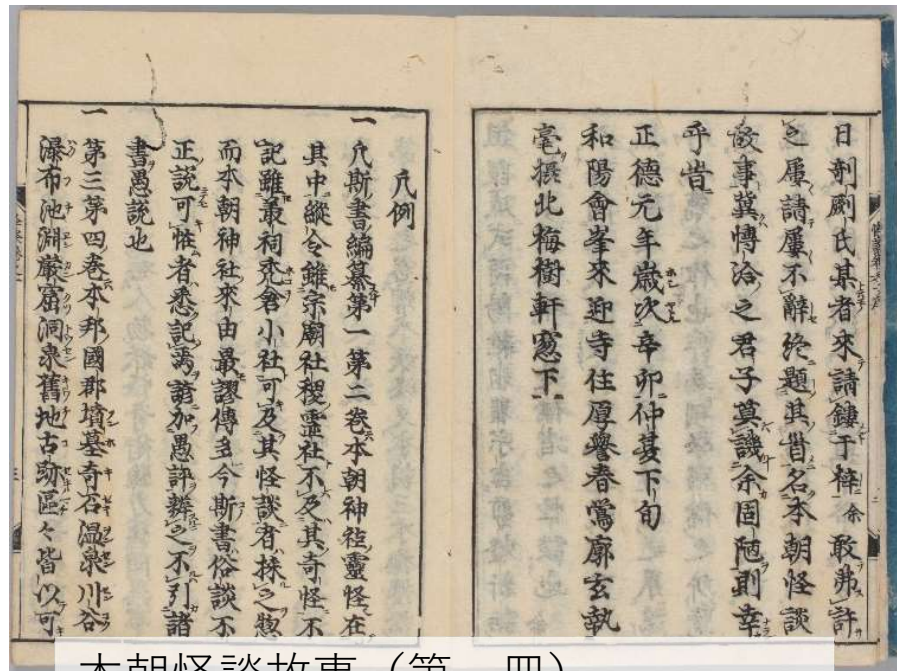 日剞劂氏某者來請鏤于梓余敢弗許
之屢請屢不辭終題其昔名本朝怪談
故事冀博洽之君子莫譏余固陋則幸
乎昔
正德元年歲次辛卯仲夏下旬
和陽會峯來迎寺住厚譽春鶯廓玄執
毫攝北梅樹軒窓下
凡例
一凡斯書編纂第一第二卷本朝神社靈怪在
其中縱令雖宗廟社稷靈社不及其奇怪不
記雖叢祠禿倉小社可及其怪談者採之惣
而本朝神社來由最謬傳多今斯書俗談不
正說可恠者悉記焉諺加愚評辨之不引諸
書愚說也
一第三第四卷本邦國郡墳墓奇石溫泉川谷
瀑布池淵巖窟洞泉舊地古跡區々皆以可
本朝怪談故事（第一四）